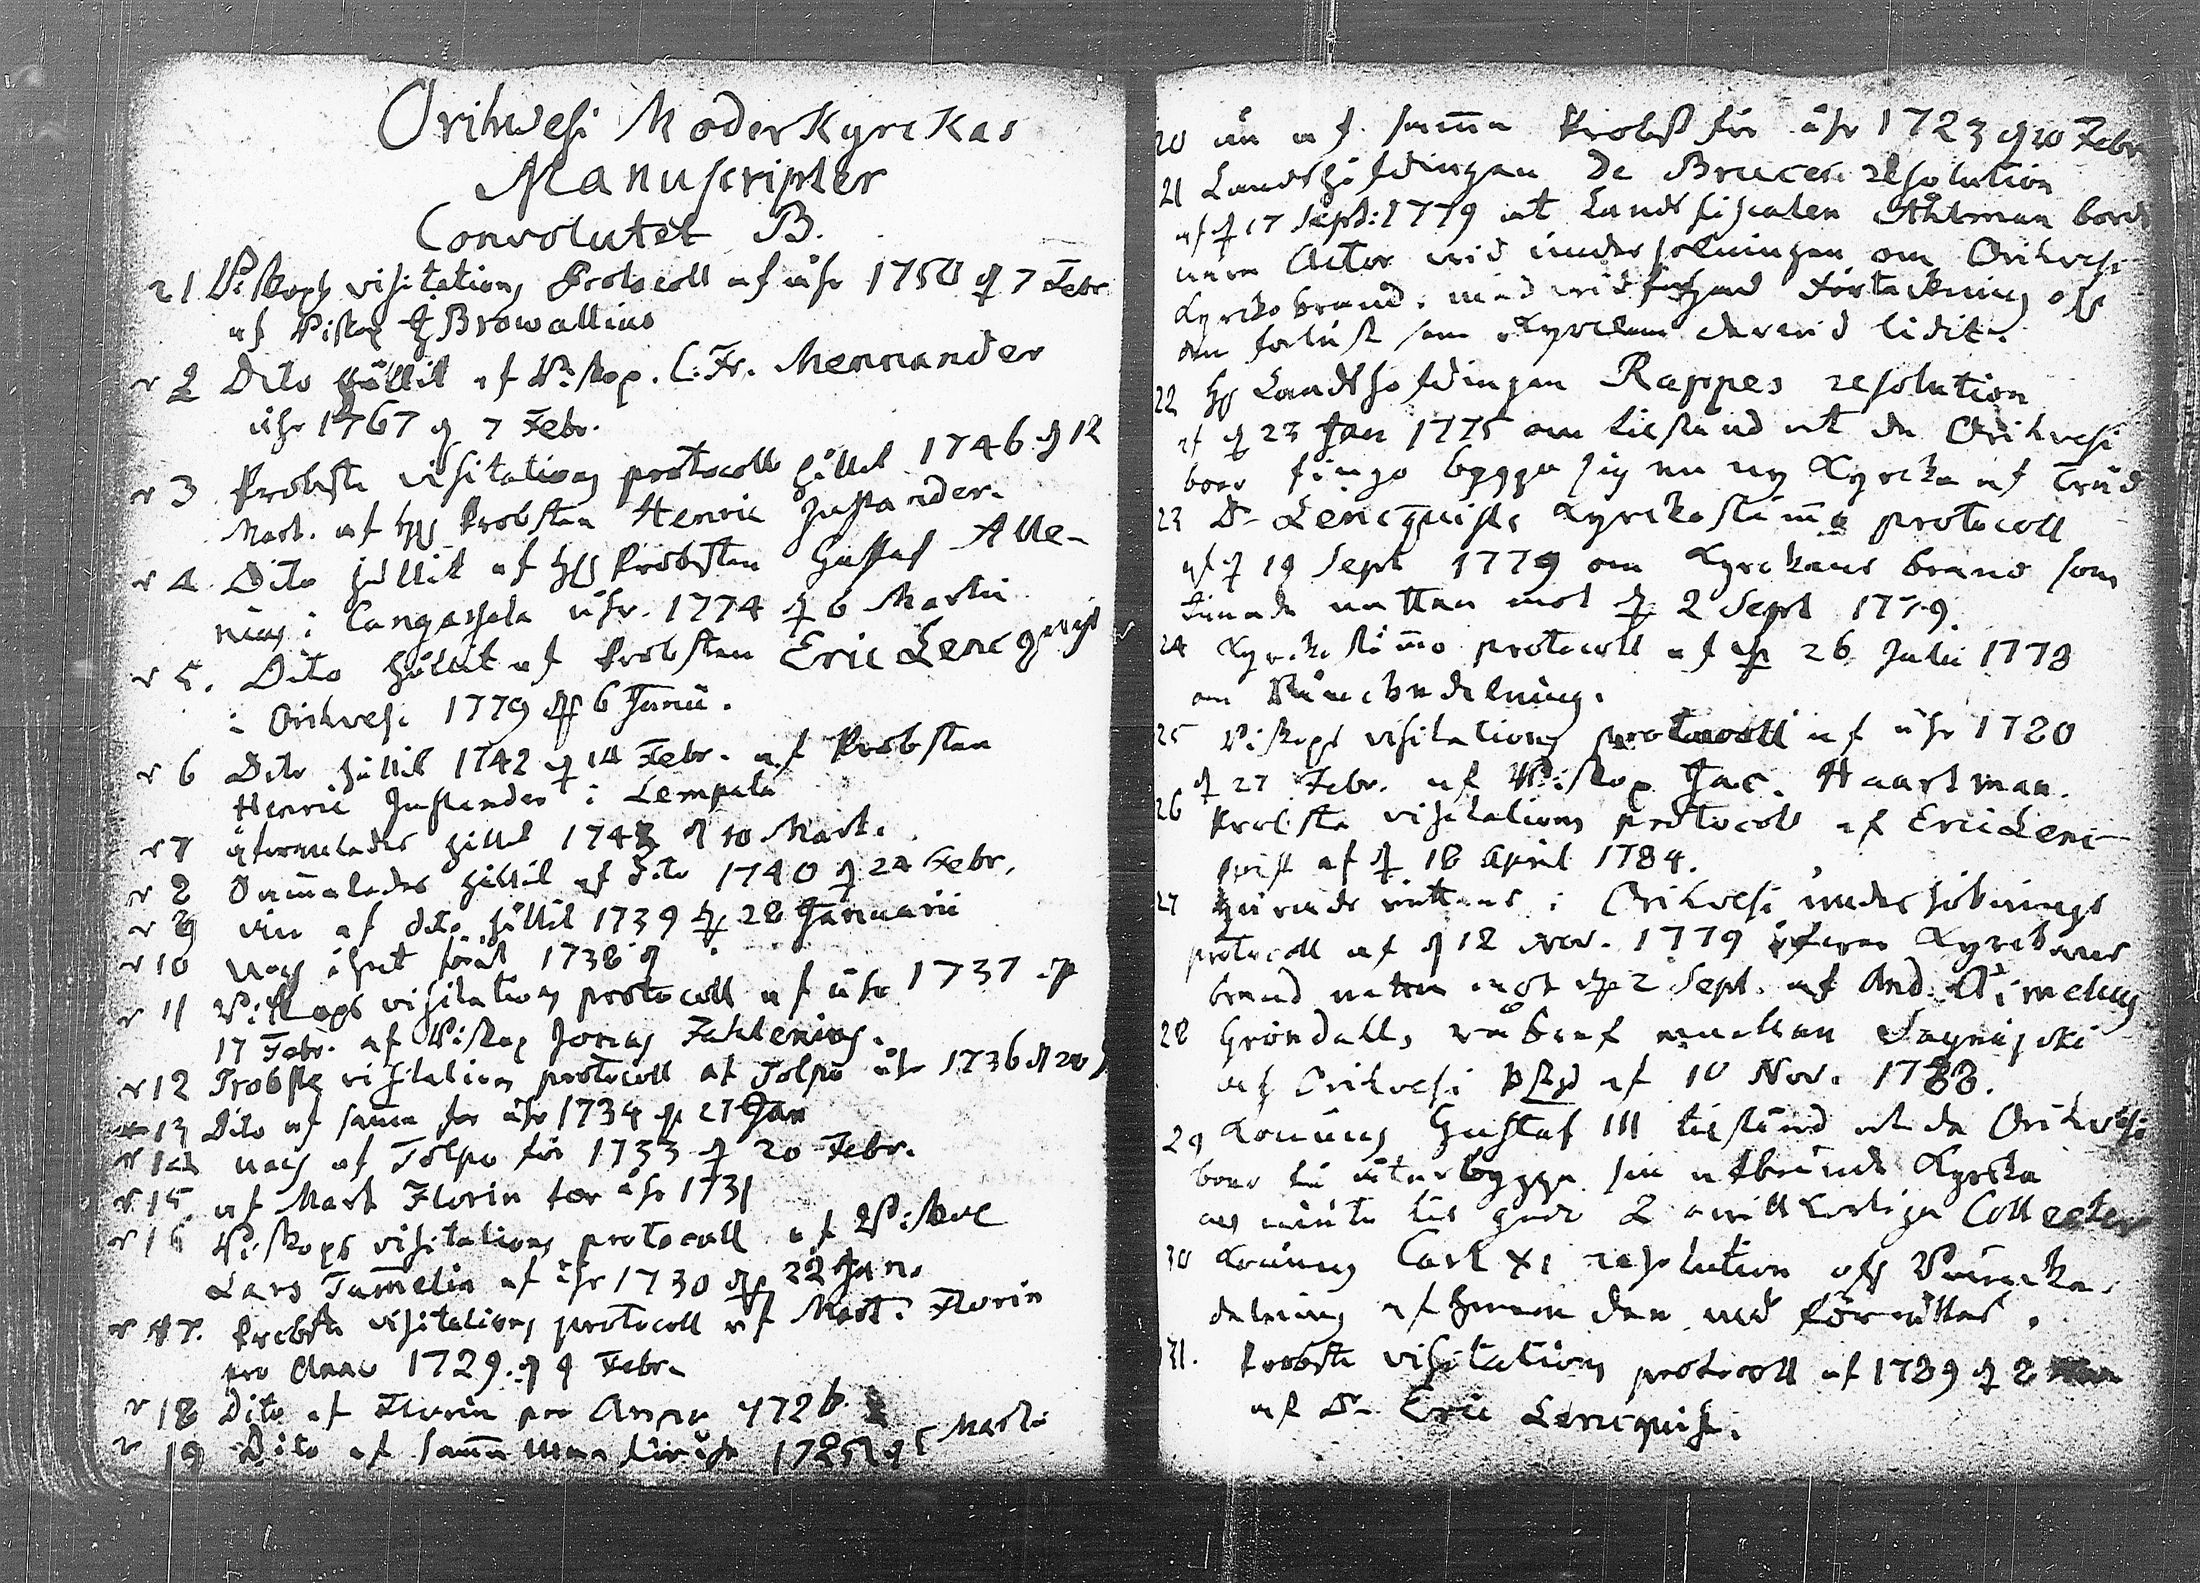 Orihwesi Moderkyrckas
Manuscripter
Convolutet B.
1 Biskops visitations Protocoll af åhr 1750 d 7 Febr
af Biskop J Browallius
2 Dito hållit af Biskop. C. Fr. Mennander
åhr 1767 d 7 Febr.
3 Probste visitations protocoll hållit 1746 d 12
Mart. af H Probsten Henric Justander.
4 Dito hållit af H Probsten Gustaf Alle-
nius i Cangasala åhr. 1774 d 6 Martii
5. Dito hållit af Probsten Eric Lencqvist
i Orihvesi 1779 d 6 Junii.
6 Dito hållit 1742 d 14 Febr. af Probsten
Henric Justander i Lempälä
7 äfwenledes hållit d 10 Mart.
8 Sammaledes hållit af Dito 1740 d 24 Febr.
9 än af dito hållit 1739 d 28 Januarii
10 åhret förut 1738 d
11 Biskops visitations protocoll af åhr 1737 d
17 Febr. af Biskop Jonas Fahlenius.
12 Probste visitations protocoll af Tolpo åhr 1736 d 20
13 Dito af samma for åhr 1734 d 27 Jan
14 af Tolpo för 1733 d 20 Febr.
15 af Mart Florin for åhr 1731
16 Biskops visitations protocoll af Biskop
Lars Tammelin af åhr 1730 d 22 Jan.
17. Probste visitations protocoll af Mart. Florin
pro Anno 1729. d 9 Febr.
18 Dito af Florin pro Anno 1726
19 Dito af samma för åhr 1725 d 5 Martii
20 än af samma Probst för åhr 1723 d 20 Febr
21 Landshöfdingen De Bruces resolution
af d 17 Sept: 1779 at Landsfiscalen Åhlman bord
wara Actor wid undersökningen om Orihvesi
Kyrcko brand. med widfogad Förteckning
om förlust som Kyrckan derwid lidit.
22 H Landshöfdingen Rappes resolution
af d 23 Jan 1775 om tilstånd at de Orihvesi
boer finge bygga sig en ny Kyrcka af Träd
23 Dr Lencquists Kyrckostämma protocoll
af d 19 Sept 1779 om Kyrckans brand som
timade natten mot d 2 Sept 1779.
24 Kyrckostämmo protocoll af d 26 Julii 1778
om Bänckedelning.
25 Biskops visitations protocoll af åhr 1780
d 27 Febr. af Biskop Jac. Haartman.
26 Probste visitations protocoll af Eric Lenc-
quist af d 18 April 1784.
27 Härads rättens i Orihvesi undersöknings
protocoll af d 18 Nov. 1779 öfwer Kyrckans
brand natten mot d 2 Sept. af And. Aimelæus
28 Gröndahls råbref
af Orihvesi af 10 Nov. 1788.
29 Konung Gustaf III tilstånd at de Orihvesi
boer få återbygga sin afbrände Kyrcka
2 Collecter
30 Konung Carl XI resolution Bäncka-
delning af hwem den må förrättas.
31. Probste visitations protocoll af 1789 d 2
af Dr Eric Lencquist.